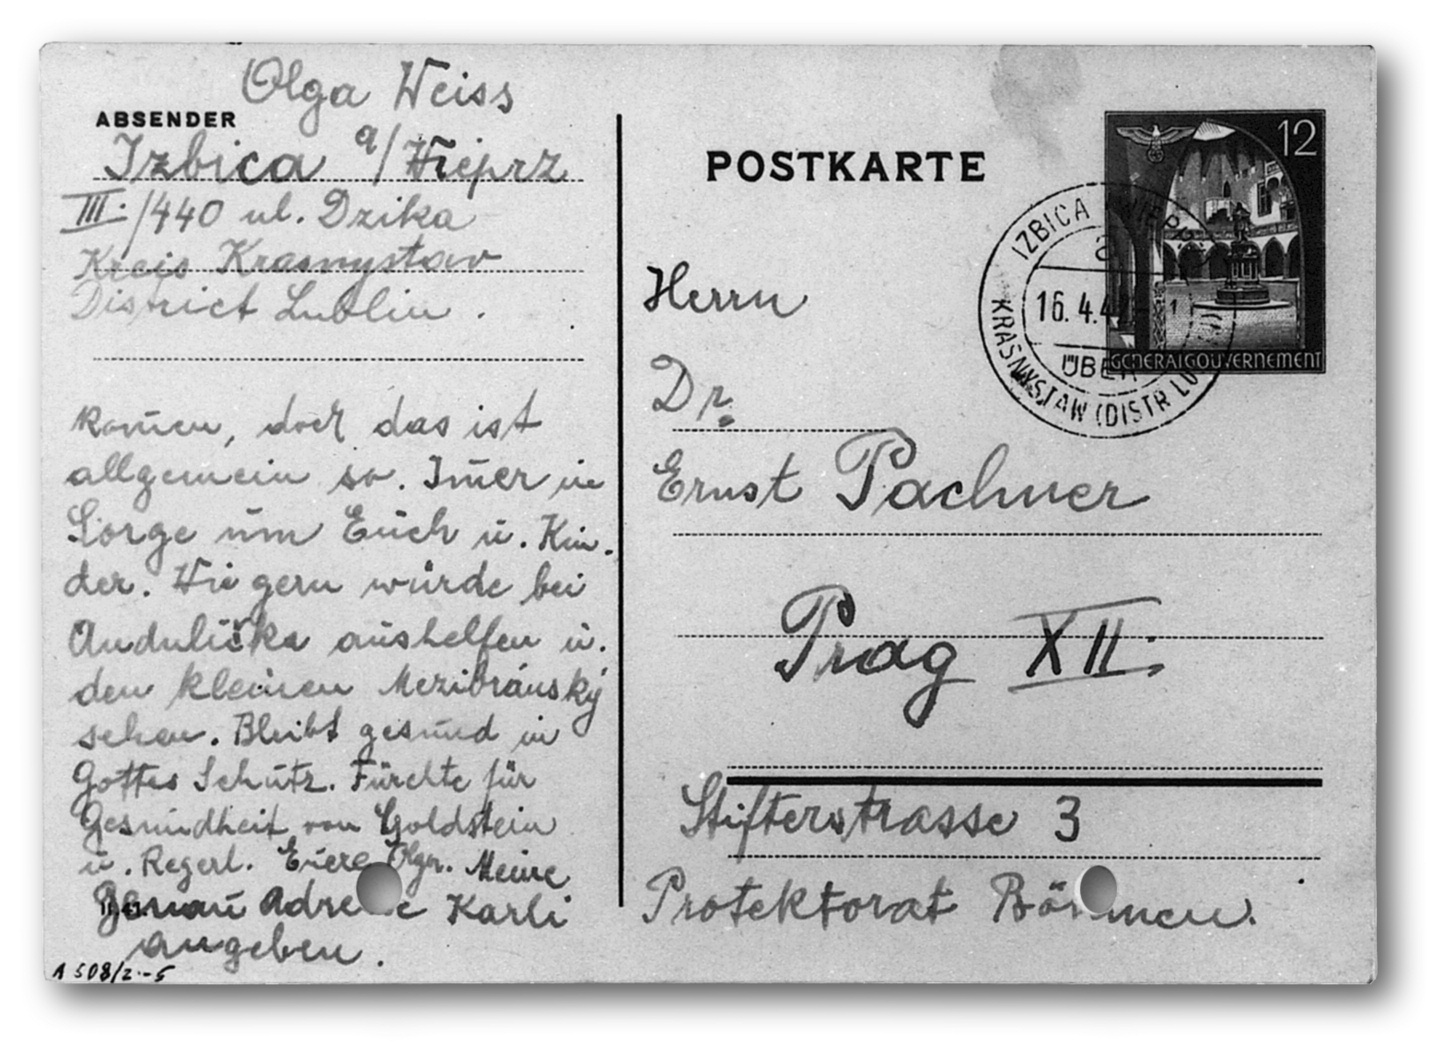 Olga Weiss
ABSENDER
Izbica a/Wieprz
III./440 ul. Dzika
Kreis Krasnystaw
District Lublin.
kom̄en, doch das ist
allgemein so. Im̄er in
Sorge um Euch u. Kin-
der. Wie gern würde bei
Andulička aushelfen u.
den kleinen Mezibránský
sehen. Bleibt gesund in
Gottes Schutz. Fürchte für
Gesundheit von Goldstein
u. Regerl. Euere Olga. Meine
Genau Adresse Karli
angeben.
A 508/2-5
POSTKARTE
12
GENERALGOUVERNEMENT
IZBICA (WIEPRZ)
a
16.4.42-1
ÜBER
KRASNYSTAW (DISTR LUBLIN)
Herrn
Dr.
Ernst Pachner
Prag XII.
Stifterstrasse 3
Protektorat Böhmen.